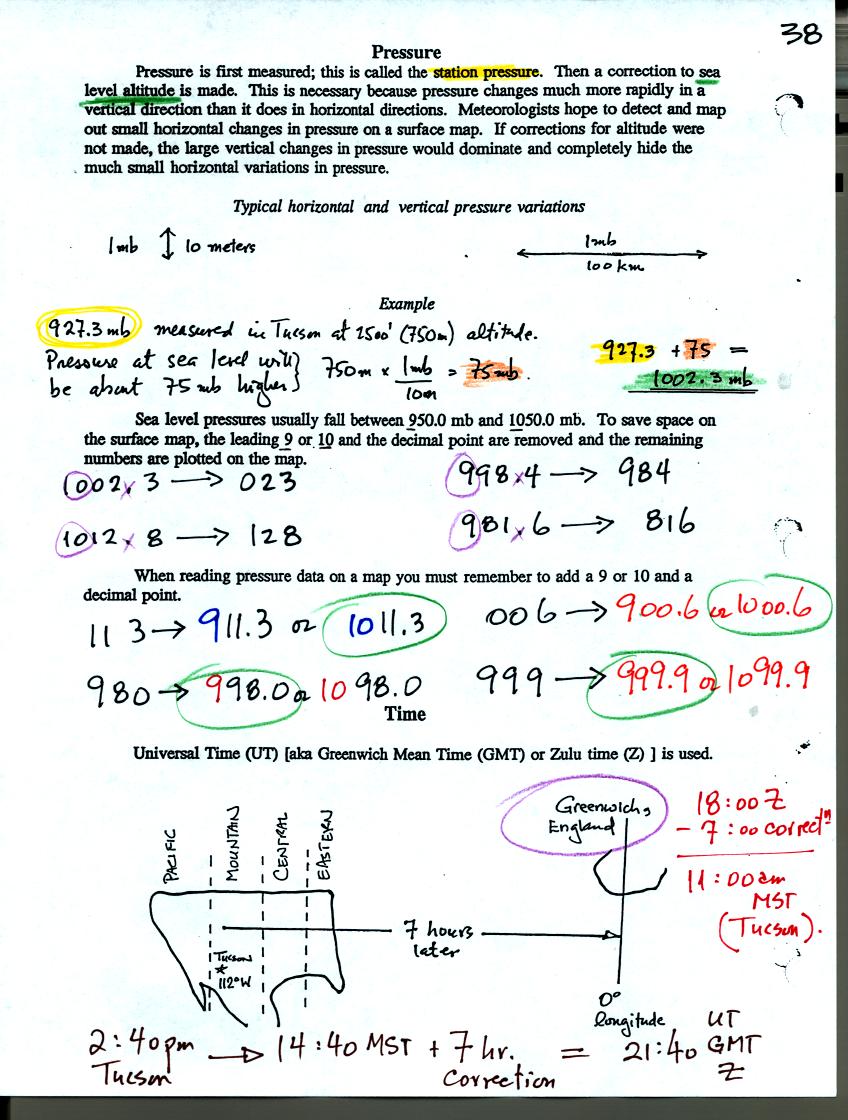 38
Pressure
Pressure is first measured; this is called the station pressure. Then a correction to sea
level altitude is made. This is necessary because pressure changes much more rapidly in a
vertical direction than it does in horizontal directions. Meteorologists hope to detect and map
out small horizontal changes in pressure on a surface map. If corrections for altitude were
not made, the large vertical changes in pressure would dominate and completely hide the
much small horizontal variations in pressure.
Typical horizontal and vertical pressure variations
1mb ↕ 10 meters
1mb
100 km
Example
927.3 mb measured in Tucson at 2500' (750m) altitude.
Pressure at sea level will } 750m × 1mb = 75 mb.
be about 75 mb higher
10m
927.3 + 75 =
1002.3 mb
Sea level pressures usually fall between 950.0 mb and 1050.0 mb. To save space on
the surface map, the leading 9 or 10 and the decimal point are removed and the remaining
numbers are plotted on the map.
1002.3 → 023
998.4 → 984
1012.8 → 128
981.6 → 816
When reading pressure data on a map you must remember to add a 9 or 10 and a
decimal point.
113 → 911.3 or 1011.3
006 → 900.6 or 1000.6
980 → 998.0 or 1098.0
999 → 999.9 or 1099.9
Time
Universal Time (UT) [aka Greenwich Mean Time (GMT) or Zulu time (Z) ] is used.
PACIFIC
MOUNTAIN
CENTRAL
EASTERN
Greenwich,
England
18:00 Z
- 7:00 correctn
11:00 am
MST
(Tucson).
7 hours
later
Tucson
112°W
0°
longitude
2:40 pm → 14:40 MST + 7 hr. = 21:40 UT
GMT
Z
Tucson
Correction